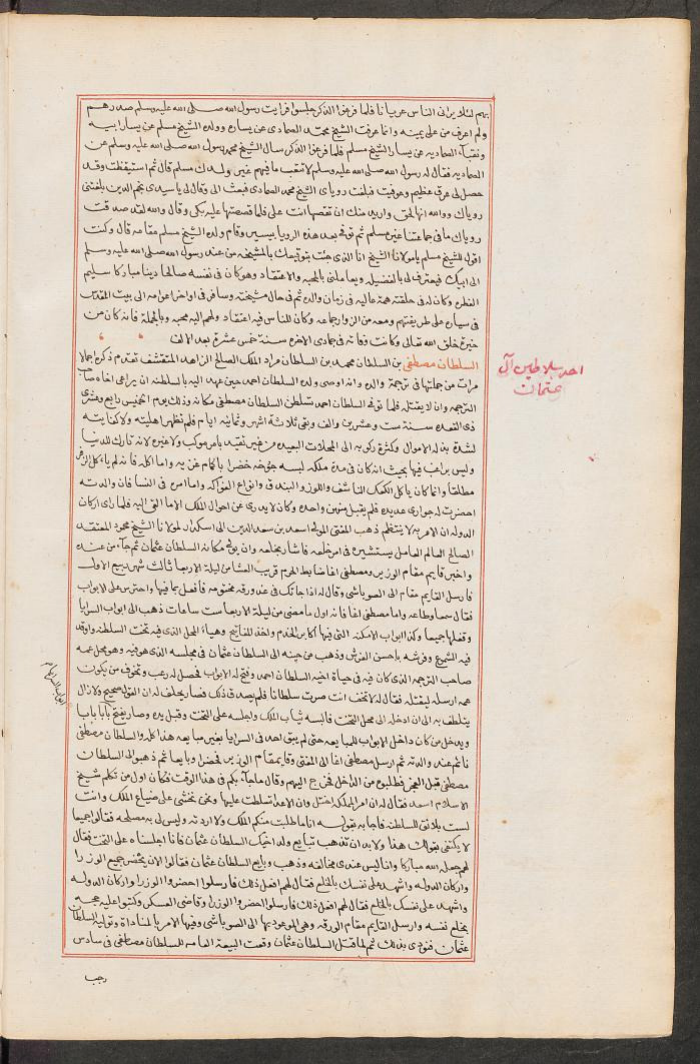 بهم لئلا يرانى الناس عريانا فلما فرغوا الذكر جلسوا فرايت رسول الله صلى الله عليه وسلم صدرهم
ولم اعرف من على يمينه وانما عرفت الشيخ محمد الصمادى عن يساره وولده الشيخ مسلم عن يسار ابيه
ونقباء الصماديه عن يسار الشيخ مسلم فلما فرغوا الذكر سال الشيخ محمد رسول الله صلى الله عليه وسلم عن
الصماديه فقال له رسول الله صلى الله عليه وسلم ما فيهم غير ولدك مسلم قال ثم استيقظت وقد
حصل لى عرق عظيم وعوفيت فبلغت روياى الشيخ محمد الصمادى فبعث الى وقال لى يا سيدى نجم الدين بلغتنى
روياك ووالله انها لحق واريد منك ان تقصها انت على فلما قصصتها عليه بكى وقال والله لقد صدقت
روياك ما فى جماعتنا غير مسلم ثم توفى بعد هذه الرويا بيسير وقام ولده الشيخ مسلم مقامه قال وكنت
اقول للشيخ مسلم يا مولانا الشيخ انا الذى جئت بتوقيعك بالمشيخه من عند رسول الله صلى الله عليه وسلم
الى ابيك فيعترف لى بالفضيله ويعاملنى بالمحبه والاعتقاد وهو كان فى نفسه صالحا دينا مباركا سليم
الفطره وكان له فى حلقته همة عاليه فى زمان والده ثم فى حال مشيخته وسافر فى اواخر اعوامه الى بيت المقدس
فى سياره على طريقتهم ومعه من الزوار جماعه وكان للناس فيه اعتقاد ولهم اليه محبه وبالجملة فانه كان من
خيرة خلق الله تعالى وكانت وفاته فى جمادى الاخره سنة خمس عشرة بعد الالف
السلطان مصطفى بن السلطان محمد بن السلطان مراد الملك الصالح الزاهد المتقشف تقدم ذكره اجمالا
مرات من جملتها فى ترجمة والده وانه اوصى ولده السلطان احمد حين عهد اليه بالسلطنه ان يراعى اخاه صاحب
الترجمه وان لا يقتله فلما توفى السلطان احمد تسلطن السلطان مصطفى مكانه وذلك يوم الخميس رابع وعشرى
ذى القعده سنة ست وعشرين والف وبقى ثلاثة اشهر وثمانية ايام فلم تظهر اهليته ولا كفايته
لشدة بذله الاموال وكثرة ركوبه الى المحلات البعيده من غير تقيد بامر موكب ولا غيره لانه تارك للدنيا
وليس براغب فيها بحيث انه كان فى مدة ملكه لبسه جوخه خضرا باكمام عربيه واما اكله فانه لم ياكل الزفر
مطلقا وانما كان ياكل الكعك الناشف واللوز والبندق وانواع الفواكه واما امره فى النسا فان والدته
احضرت له جوارى عديده فلم يقبل منهن واحده وكان لا يدرى عن احوال الملك الا ما القى اليه فلما راى اركان
الدوله ان الامر به لا ينتظم ذهب المفتى المولى اسعد بن سعد الدين الى اسكدار لمولانا الشيخ محمود المعتقد
الصالح العالم العامل يستشيره فى امر خلعه فاشار بخلعه وان يولى مكانه السلطان عثمان ثم جاء من عنده
واخبر قايم مقام الوزير ومصطفى اغا ضابط الحرم قريب العشا من ليلة الاربعا ثالث شهر ربيع الاول
فارسل القايم مقام الى الصوباشى وقال له اذا جاتك فى غد ورقه مختومه فافعل بما فيها واحترس على الابواب
فقال سمعا وطاعه واما مصطفى اغا فانه اول ما مضى من ليلة الاربعا ست ساعات ذهب الى ابواب السرايا
وقفلها جميعا وكذا ابواب الامكنه التى فيها اكابر الخدم واخذ المفاتيح وهيا المحل الذى فيه تخت السلطنه واوقد
فيه الشموع وفرشه باحسن الفرش وذهب من حينه الى السلطان عثمان فى مجلسه الذى هو فيه وهو محل عمه
صاحب الترجمه الذى كان فيه فى حياة اخيه السلطان احمد وفتح له الابواب فحصل له رعب وتخوف من يكون
عمه ارسله ليقتله فقال له لا تخف انت صرت سلطانا فلم يصدق ذلك فصار يحلف له ان القول صحيح ولا زال
يتلطف به الى ان ادخله الى محل التخت فالبسه ثياب الملك واجلسه على التخت وقبل يده وصار يفتح بابا بابا
ويدخل من كان داخل الابواب للمبايعه حتى لم يبق احد فى السرايا بغير مبايعه هذا كله والسلطان مصطفى
نائم عند والدته ثم ارسل مصطفى اغا الى المفتى وقايم مقام الوزير فحضرا وبايعا ثم ذهبوا الى السلطان
مصطفى قبل الفجر فطلبوه من الداخل فخرج اليهم وقال ما جاء بكم فى هذا الوقت فكان اول من تكلم شيخ
الاسلام اسعد فقال له ان امر الملك اختل وان الاعدا تسلطت عليها ونحن نخشى على ضياع الملك وانت
لست بلائق للسلطنه فاجابه بقوله انا ما طلبت منكم الملك ولا اردته وليس لى به مصلحه فقالوا جميعا
لا يكتفى بقولك هذا ولا بد ان تذهب تبايع ولد اخيك السلطان عثمان فانا اجلسناه على التخت فقال
لهم جعله الله مباركا وانا ليس عندى مخالفه وذهب وبايع السلطان عثمان فقالوا الان يحضر جميع الوزرا
واركان الدوله واشهد على نفسك بالخلع فقال لهم افعل ذلك فارسلوا احضروا الوزرا واركان الدوله
واشهد على نفسك بالخلع فقال لهم افعل ذلك فارسلوا احضروا الوزرا وقاضى العسكر وكتبوا عليه حجه
بخلع نفسه وارسل القايم مقام الورقه وهى الموعود بها الى الصوباشى وفيها الامر بالمناداة وتولية السلطان
عثمان فنودى بذلك ثم لما قتل السلطان عثمان وقعت البيعة العامه للسلطان مصطفى فى سادس
رجب
احد سلاطين آل
عثمان